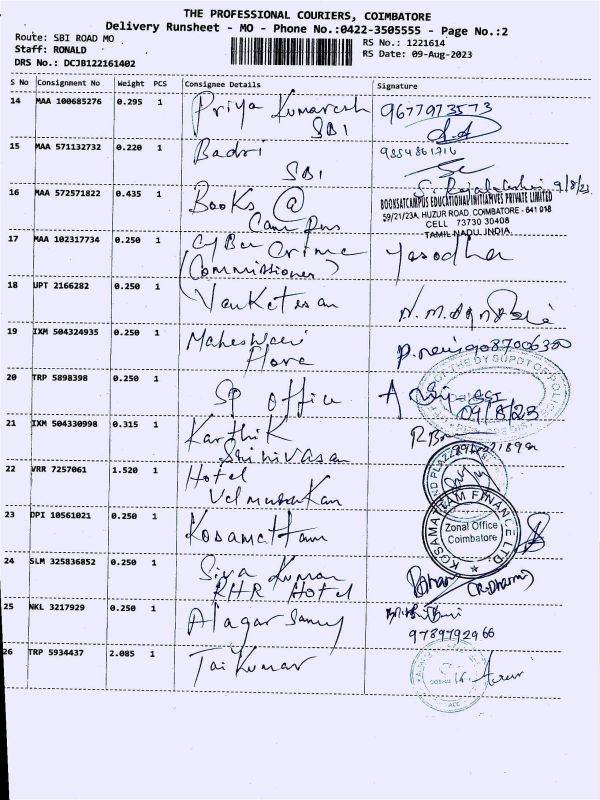 THE PROFESSIONAL COURIERS, COIMBATORE
Delivery Runsheet - MO - Phone No.:0422-3505555 - Page No.:2
Route: SBI ROAD MO
RS No.: 1221614
Staff: RONALD
RS Date: 09-Aug-2023
DRS No.: DCJB122161402
S No Consignment No Weight PCS Consignee Details Signature
14 MAA 100685276 0.295 1 Priya Kumaresh 9677973573
SBI
15 MAA 571132732 0.220 1 Badri
SBI
9/8/23
16 MAA 572571822 0.435 1 Books @
Campus
BOOKSATCAMPUS EDUCATIONAL INITIATIVES PRIVATE LIMITED
59/21/23A, HUZUR ROAD, COIMBATORE - 641 018
CELL 73730 30408
TAMIL NADU, INDIA
17 MAA 102317734 0.250 1 Cyber Crime Yasodha
(Commissioner)
18 UPT 2166282 0.250 1 Venketesan
19 IXM 504324935 0.250 1 Maheshwari
Flora
20 TRP 5898398 0.250 1 SP office
09/8/23
21 IXM 504330998 0.315 1 Karthik
Shinivasan
22 VRR 7257061 1.520 1 Hotel
23 DPI 10561021 0.250 1 Kosamattam
KOSAMATTAM FINANCE LTD.
Zonal Office
Coimbatore
24 SLM 325836852 0.250 1 Siva Kumar
RHR Hotel
25 NKL 3217929 0.250 1 Alagar Samy
9789792966
26 TRP 5934437 2.085 1 Jai Kumar